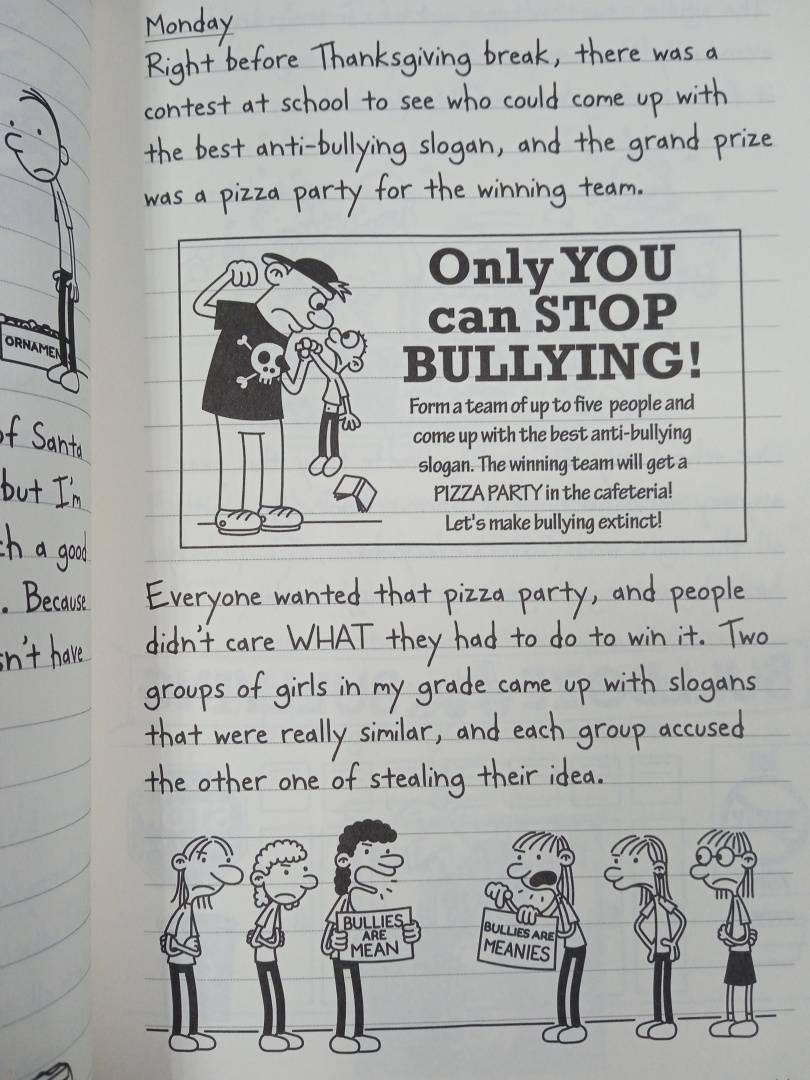 ORNAMEN
of Santa
but I'm
ch a good
. Because
sn't have
Monday
Right before Thanksgiving break, there was a
contest at school to see who could come up with
the best anti-bullying slogan, and the grand prize
was a pizza party for the winning team.
Only YOU
can STOP
BULLYING!
Form a team of up to five people and
come up with the best anti-bullying
slogan. The winning team will get a
PIZZA PARTY in the cafeteria!
Let's make bullying extinct!
Everyone wanted that pizza party, and people
didn't care WHAT they had to do to win it. Two
groups of girls in my grade came up with slogans
that were really similar, and each group accused
the other one of stealing their idea.
BULLIES
ARE
MEAN
BULLIES ARE
MEANIES